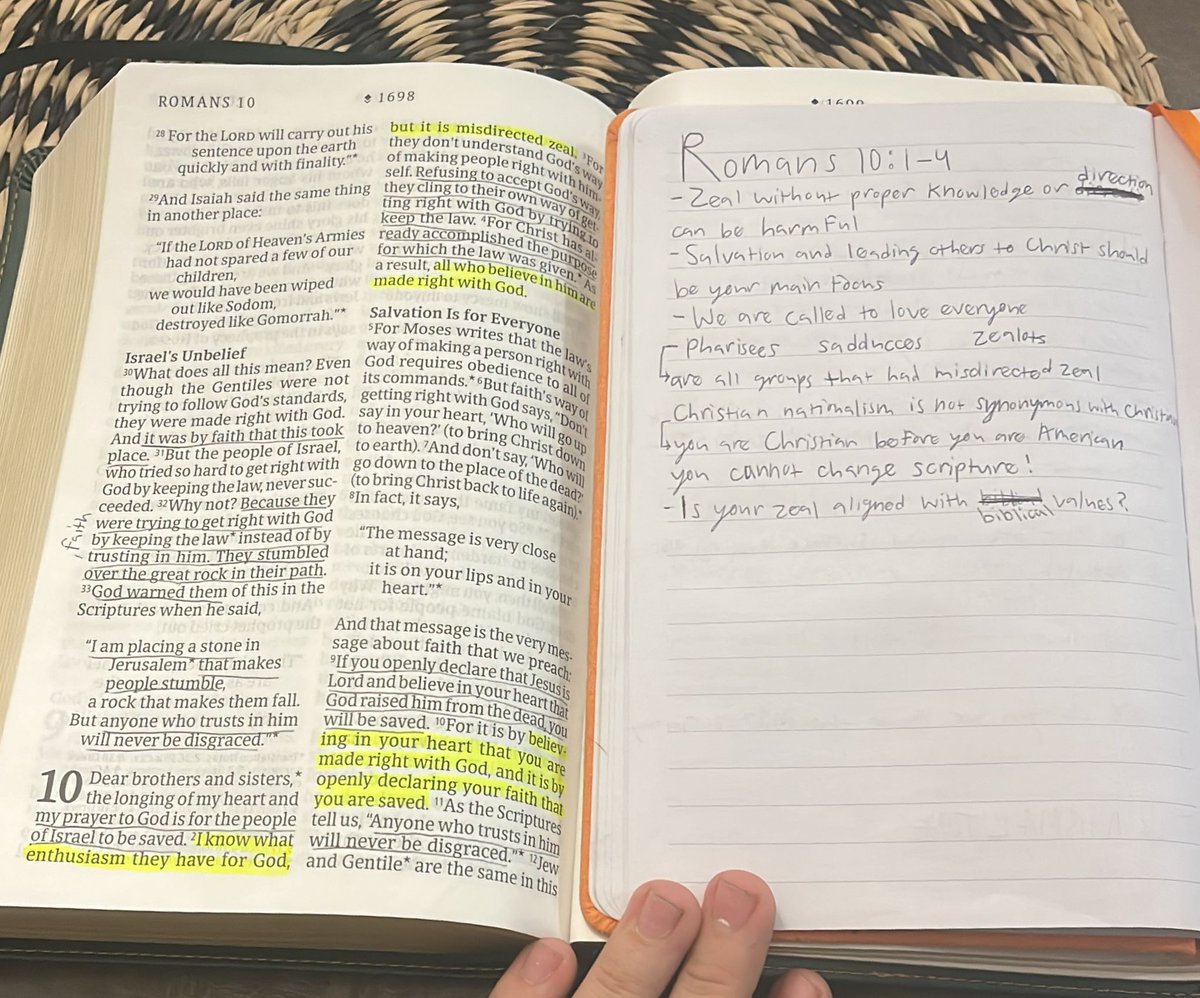 ROMANS 10
1698
28 For the LORD will carry out his
sentence upon the earth
quickly and with finality.”*
29And Isaiah said the same thing
in another place:
“If the LORD of Heaven’s Armies
had not spared a few of our
children,
we would have been wiped
out like Sodom,
destroyed like Gomorrah.”*
Israel’s Unbelief
30What does all this mean? Even
though the Gentiles were not
trying to follow God’s standards,
they were made right with God.
And it was by faith that this took
place. 31But the people of Israel,
who tried so hard to get right with
God by keeping the law, never suc-
ceeded. 32Why not? Because they
were trying to get right with God
by keeping the law* instead of by
trusting in him. They stumbled
over the great rock in their path.
33God warned them of this in the
Scriptures when he said,
faith
“I am placing a stone in
Jerusalem* that makes
people stumble,
a rock that makes them fall.
But anyone who trusts in him
will never be disgraced.”*
10 Dear brothers and sisters,*
the longing of my heart and
my prayer to God is for the people
of Israel to be saved. 2I know what
enthusiasm they have for God,
but it is misdirected zeal. 3For
they don’t understand God’s way
of making people right with him-
self. Refusing to accept God’s way,
they cling to their own way of get-
ting right with God by trying to
keep the law. 4For Christ has al-
ready accomplished the purpose
for which the law was given.* As
a result, all who believe in him are
made right with God.
Salvation Is for Everyone
5For Moses writes that the law’s
way of making a person right with
God requires obedience to all of
its commands.* 6But faith’s way of
getting right with God says, “Don’t
say in your heart, ‘Who will go up
to heaven?’ (to bring Christ down
to earth). 7And don’t say, ‘Who will
go down to the place of the dead?’
(to bring Christ back to life again).”
8In fact, it says,
“The message is very close
at hand;
it is on your lips and in your
heart.”*
And that message is the very mes-
sage about faith that we preach:
9If you openly declare that Jesus is
Lord and believe in your heart that
God raised him from the dead, you
will be saved. 10For it is by believ-
ing in your heart that you are
made right with God, and it is by
openly declaring your faith that
you are saved. 11As the Scriptures
tell us, “Anyone who trusts in him
will never be disgraced.”* 12Jew
and Gentile* are the same in this
Romans 10:1-4
- Zeal without proper knowledge or direction
can be harmful
- Salvation and leading others to Christ should
be your main focus
- We are called to love everyone
- Pharisees sadducces zealots
are all groups that had misdirected zeal
Christian nationalism is not synonymous with
you are Christian before you are American
you cannot change scripture!
- Is your zeal aligned with biblical values?